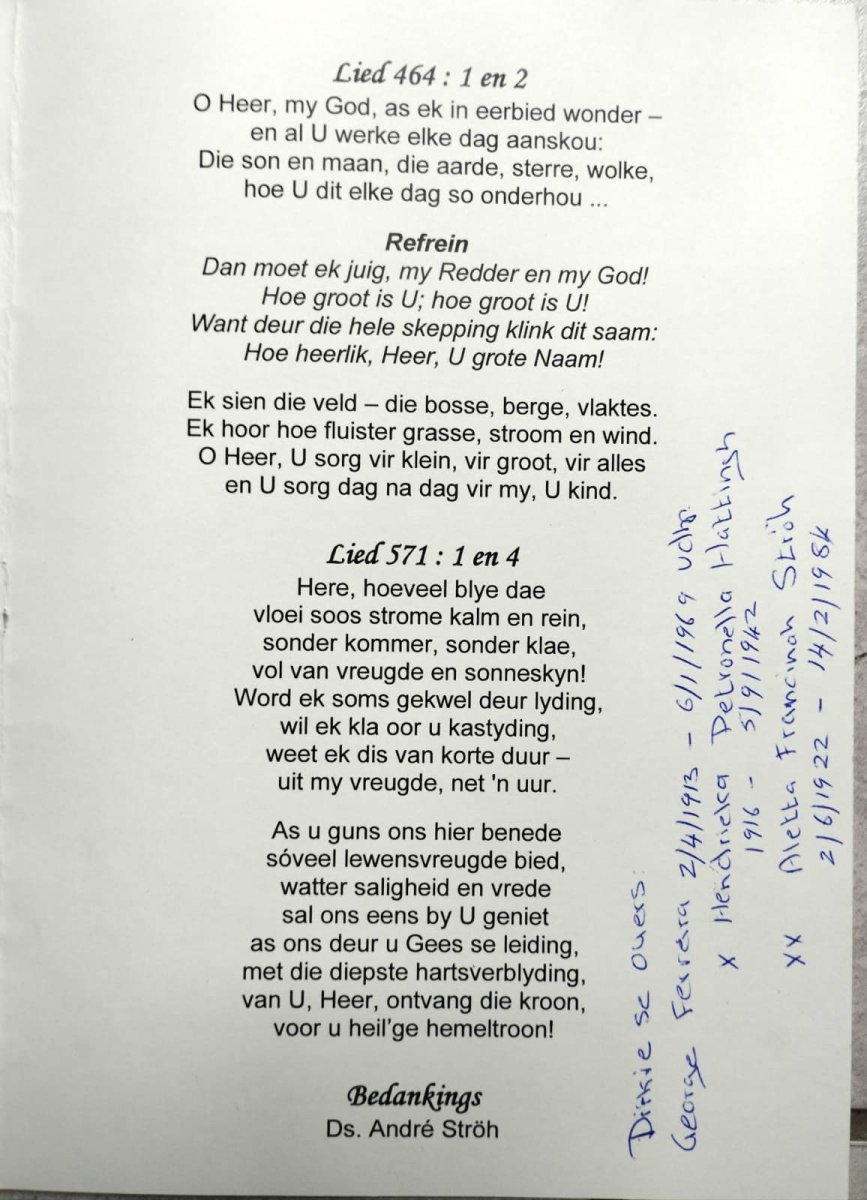 Lied 464 : 1 en 2
O Heer, my God, as ek in eerbied wonder –
en al U werke elke dag aanskou:
Die son en maan, die aarde, sterre, wolke,
hoe U dit elke dag so onderhou ...
Refrein
Dan moet ek juig, my Redder en my God!
Hoe groot is U; hoe groot is U!
Want deur die hele skepping klink dit saam:
Hoe heerlik, Heer, U grote Naam!
Ek sien die veld – die bosse, berge, vlaktes.
Ek hoor hoe fluister grasse, stroom en wind.
O Heer, U sorg vir klein, vir groot, vir alles
en U sorg dag na dag vir my, U kind.
Lied 571 : 1 en 4
Here, hoeveel blye dae
vloei soos strome kalm en rein,
sonder kommer, sonder klae,
vol van vreugde en sonneskyn!
Word ek soms gekwel deur lyding,
wil ek kla oor u kastyding,
weet ek dis van korte duur –
uit my vreugde, net 'n uur.
As u guns ons hier benede
sóveel lewensvreugde bied,
watter saligheid en vrede
sal ons eens by U geniet
as ons deur u Gees se leiding,
met die diepste hartsverblyding,
van U, Heer, ontvang die kroon,
voor u heil'ge hemeltroon!
Bedankings
Ds. André Ströh
Dirkie se ouers:
George Ferrera 2/4/1913 – 6/1/1969 Vdbp.
x Hendrieka Petronella Hattingh
1916 – 5/9/1942
xx Aletta Francinah Ströh
2/6/1922 – 14/2/1984